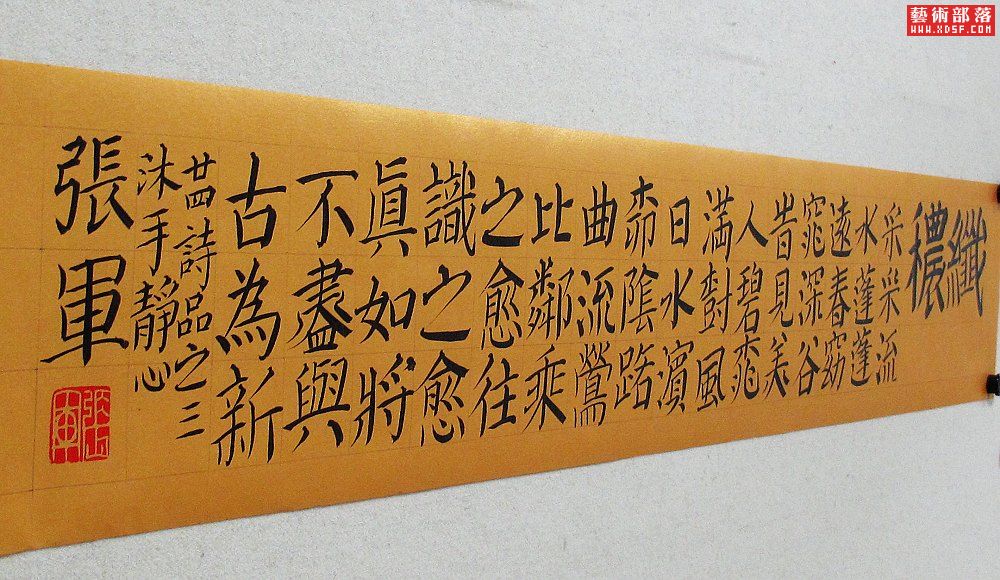 纖穠
采采流
水蓬蓬
遠春窈
窕深谷
旹見美
人碧桃
滿樹風
日水濱
桺陰路
曲流鶯
比鄰乘
之愈往
識之愈
眞如將
不盡與
古為新
廿四詩品之三
沐手靜心
張軍
藝術部落
WWW.XDSF.COM